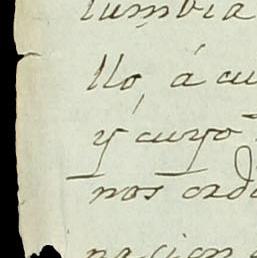 lumbia
llo, á cu
y cuyo
nos orde
nacion